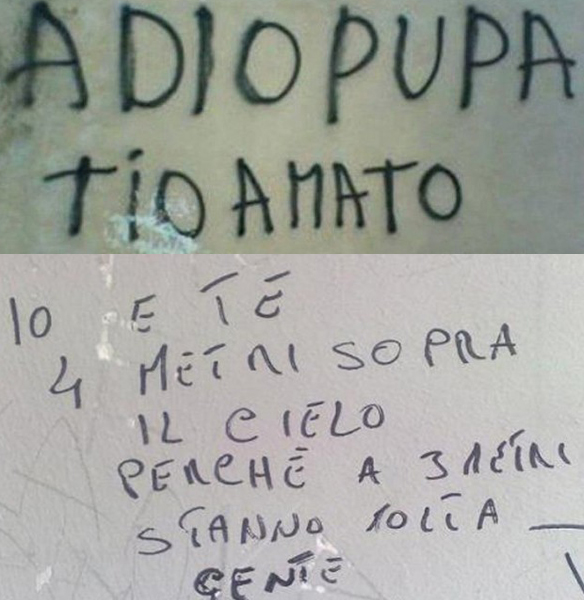 ADIO PUPA
TIO AMATO
IO E TE
4 METRI SOPRA
IL CIELO
PERCHÈ A 3 METRI
STANNO TOLTA
GENTE